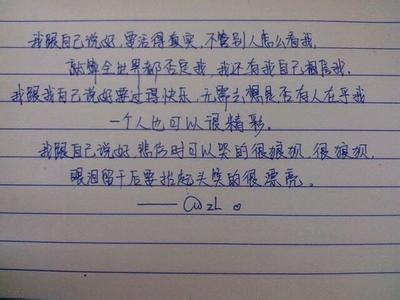 我跟自己说好，要活得真实，不管别人怎么看我，
就算全世界都否定我，我还有我自己相信我。
我跟我自己说好要过得快乐，无需去想是否有人在乎我
一个人也可以很精彩。
我跟自己说好，悲伤时可以哭的很狼狈，很狼狈，
眼泪留干后要抬起头笑的很漂亮。
—— @ZL。